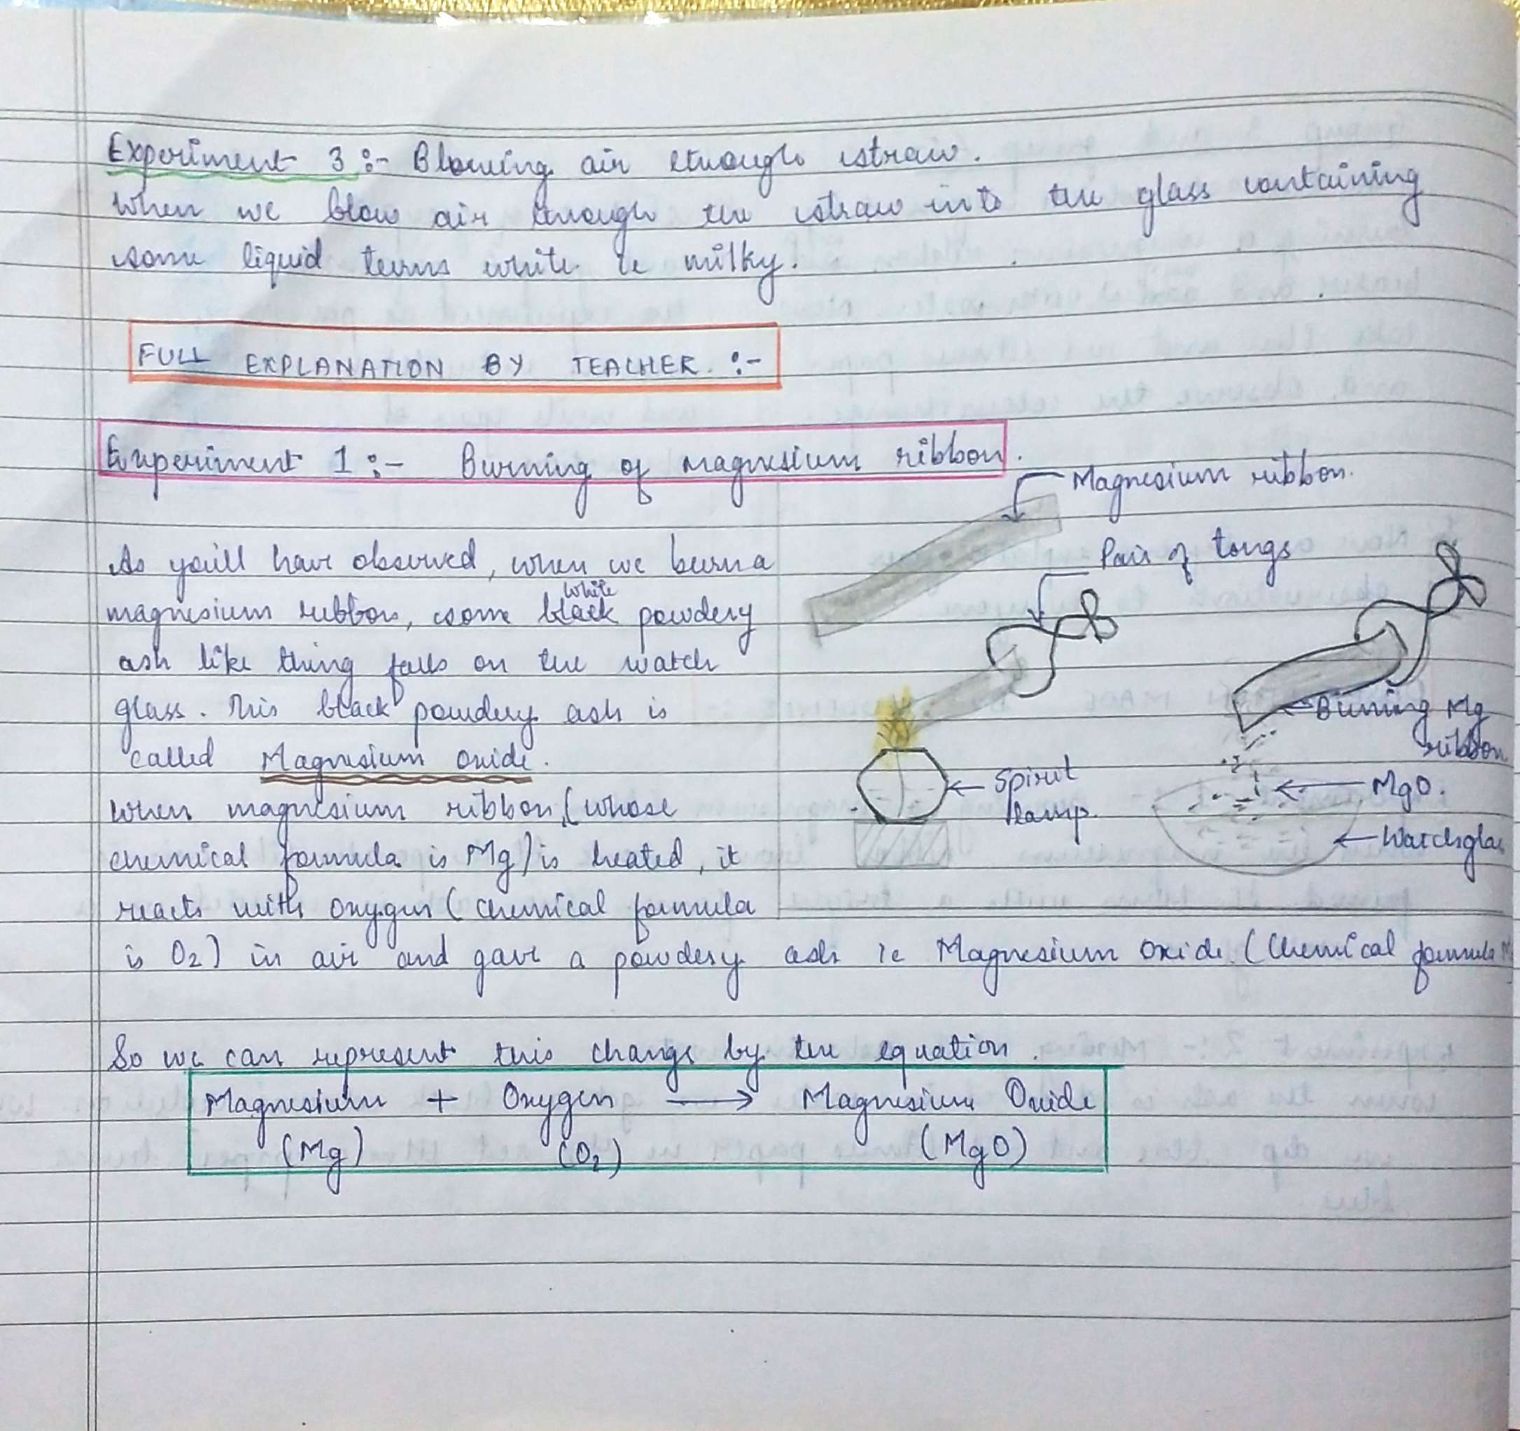 Experiment 3:- Blowing air through straw.
When we blow air through the straw into the glass containing
some liquid turns white ie milky.
FULL EXPLANATION BY TEACHER :-
Experiment 1:- Burning of magnesium ribbon.
Magnesium ribbon.
As you'll have observed, when we burn a
Pair of tongs
white
magnesium ribbon, some black powdery
ash like thing falls on the watch
glass. This black powdery ash is
Burning Mg
ribbon
called Magnesium Oxide.
Spirit
lamp.
MgO.
When magnesium ribbon (whose
Watchglas
chemical formula is Mg) is heated, it
reacts with oxygen (chemical formula
is O2) in air and gave a powdery ash ie Magnesium Oxide. (Chemical formula
So we can represent this change by the equation.
Magnesium + Oxygen → Magnesium Oxide
(Mg) (O2) (MgO)